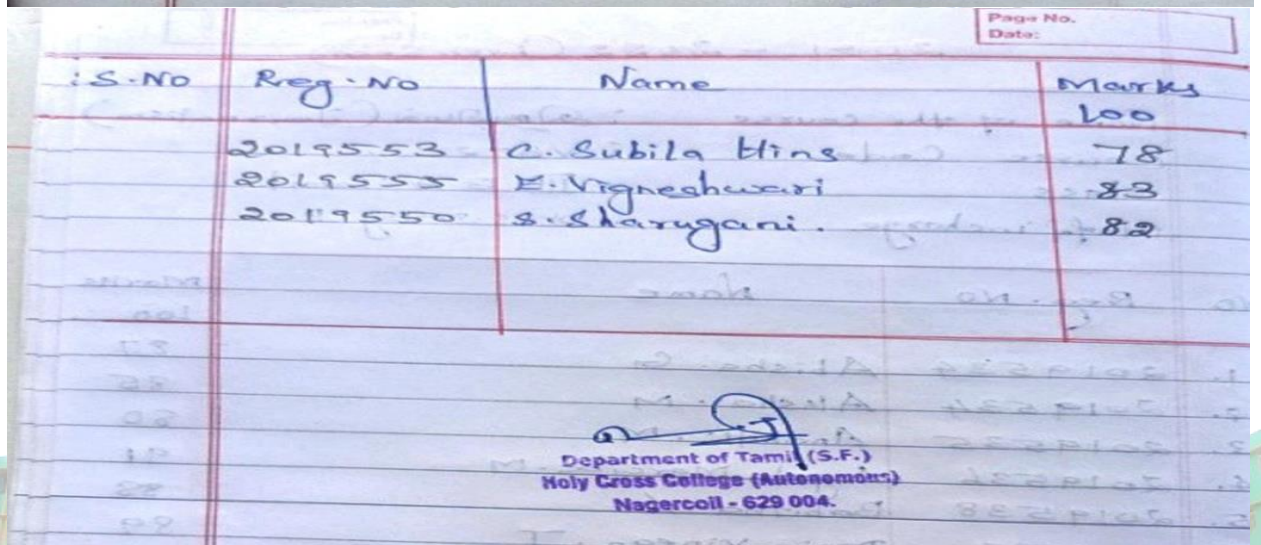 Page No.
Date:
S.No Reg.No Name Marks
100
2019553 C. Subila Hins 78
2019555 E. Vigneshwari 83
2019550 S. Sharugani. 82
Department of Tamil (S.F.)
Holy Cross College (Autonomous)
Nagercoil - 629 004.